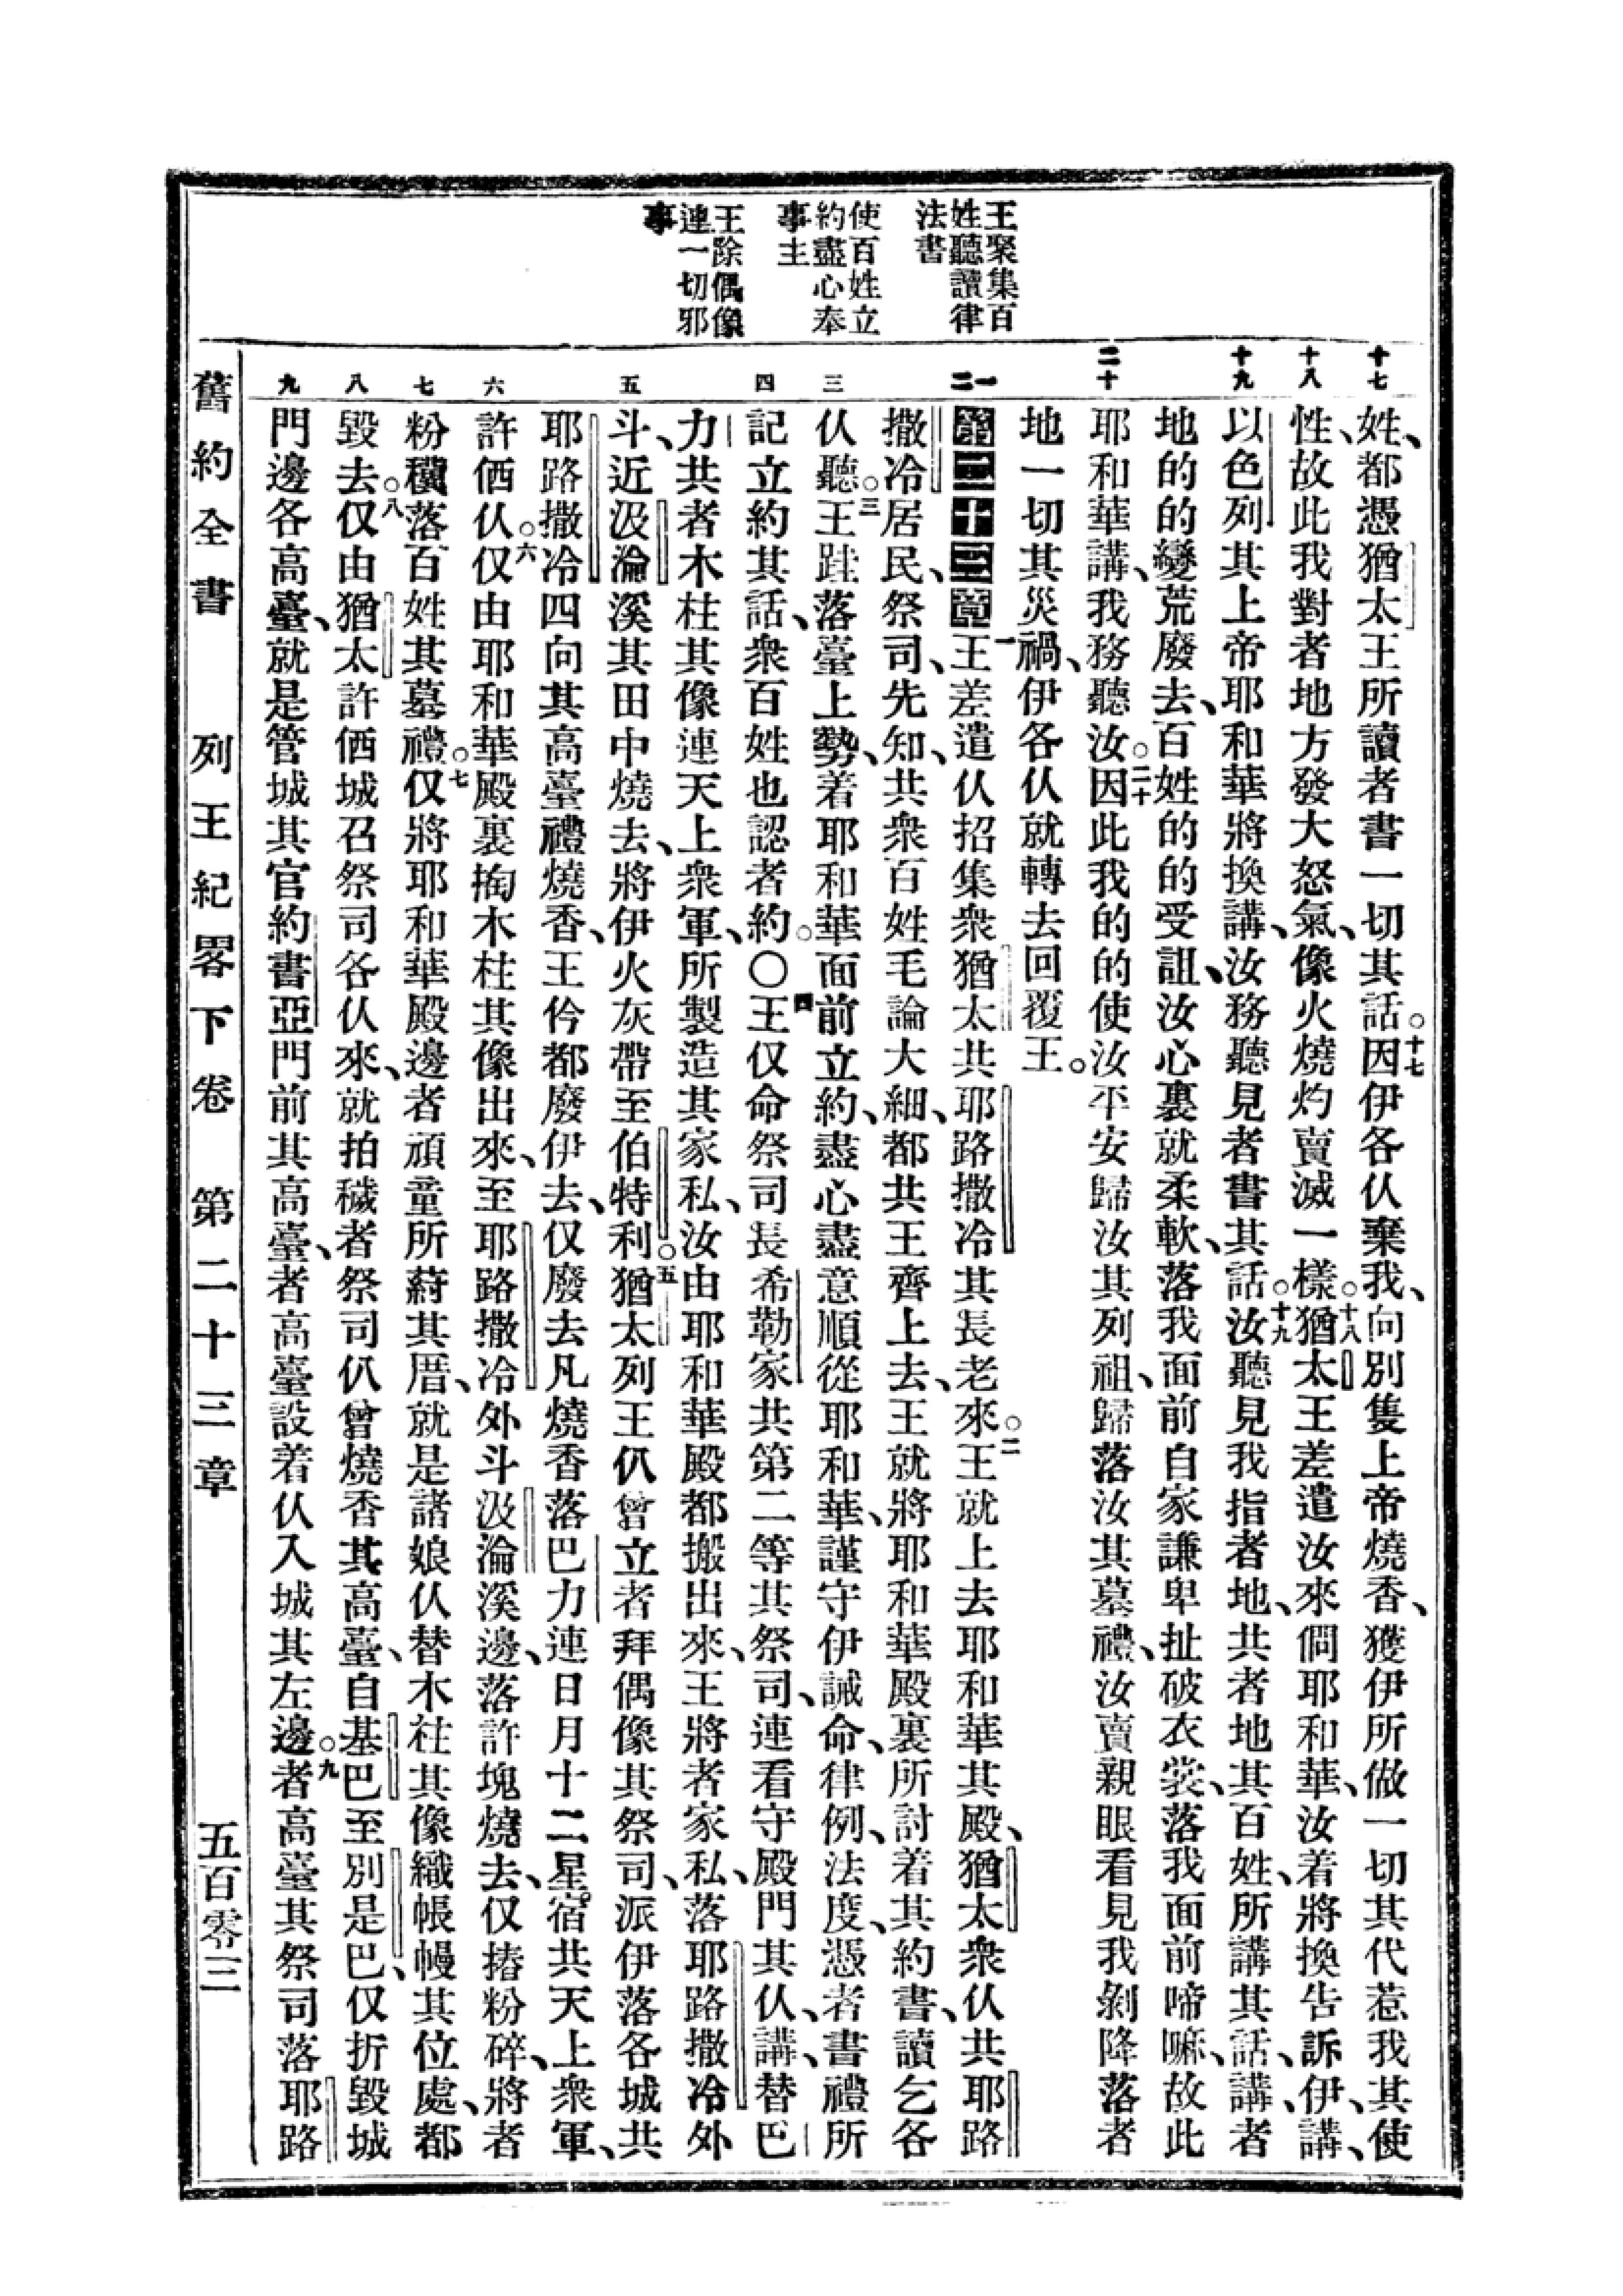 王聚集百
姓聽讀律
法書
使百姓立
約盡心奉
事主
王除偶像
連一切邪
事
十七
十八
十九
二十
一
二
三
四
五
六
七
八
九
姓、都憑猶太王所讀者書一切其話。十七因伊各仈棄我、向別隻上帝燒香、獲伊所做一切其代惹我其使
性、故此我對者地方發大怒氣、像火燒灼賣滅一樣。十八猶太王差遣汝來倜耶和華、汝着將換告訴伊、講、
以色列其上帝耶和華將換講、汝務聽見者書其話。十九汝聽見我指者地、共者地其百姓、所講其話、講、者
地的的變荒廢去、百姓的的受詛、汝心裏就柔軟、落我面前自家謙卑扯破衣裳、落我面前啼嘛、故此
耶和華講、我務聽汝。二十因此我的的使汝平安歸汝其列祖、歸落汝其墓禮、汝賣親眼看見我剝降落者
地一切其災禍、伊各仈就轉去回覆王。
第二十三章一王差遣仈招集衆猶太共耶路撒冷其長老來。二王就上去耶和華其殿、猶太衆仈共耶路
撒冷居民、祭司、先知、共衆百姓毛論大細、都共王齊上去、王就將耶和華殿裏所討着其約書、讀乞各
仈聽。三王跬落臺上勢、着耶和華面前立約、盡心盡意順從耶和華、謹守伊誡命、律例、法度、憑者書禮所
記立約其話、衆百姓也認者約。〇四王仅命祭司長希勒家共第二等其祭司、連看守殿門其仈、講、替巴
力共者木柱其像連天上衆軍、所製造其家私、汝由耶和華殿都搬出來、王將者家私、落耶路撒冷外
斗、近汲淪溪其田中燒去、將伊火灰帶至伯特利。五猶太列王仈曾立者拜偶像其祭司、派伊落各城共
耶路撒冷四向其高臺禮燒香、王仱都廢伊去、仅廢去凡燒香落巴力連日月十二星宿共天上衆軍、
許価仈。六仅由耶和華殿裏掏木柱其像出來、至耶路撒冷外斗汲淪溪邊、落許塊燒去、仅摏粉碎、將者
粉穳落百姓其墓禮。七仅將耶和華殿邊者頑童所蒔其厝、就是諸娘仈替木柱其像織帳幔其位處、都
毀去。八仅由猶太許価城召祭司各仈來、就拍穢者祭司仈曾燒香其高臺、自基巴至別是巴、仅折毀城
門邊各高臺、就是管城其官約書亞門前其高臺、者高臺設着仈入城其左邊。九者高臺其祭司落耶路
舊約全書 列王紀畧下卷 第二十三章 五百零三